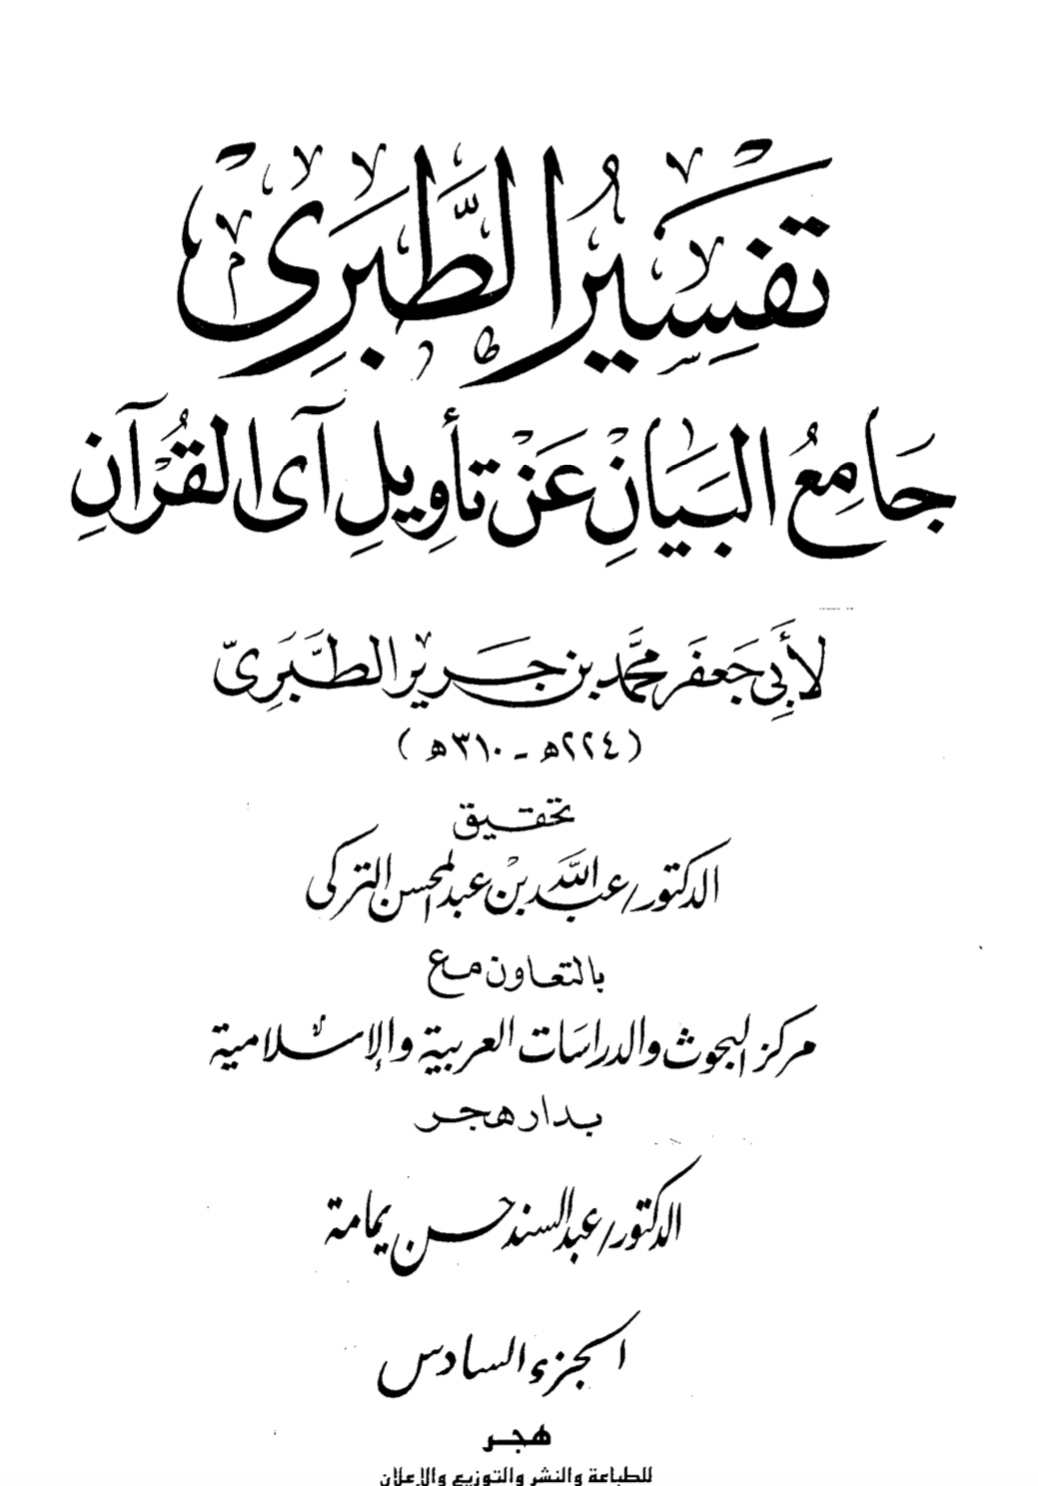 تَفْسِيرُ الطَّبَرِى
جَامِعُ البَيَانِ عَنْ تَأوِيلِ آىِ القُرْآنِ
لأَبِي جَعفَر محمَّد بن جَرير الطَّبَرِىّ
(٢٢٤هـ - ٣١٠هـ)
تحقيق
الدكتور/ عبد اللَّه بنْ عبد المحسن التركى
بالتعاون مع
مركز البحوث والدراسات العربية والإسلامية
بدار هجر
الدكتور/ عبد السند حسن يمامة
الجزء السادس
هجر
للطباعة والنشر والتوزيع والإعلان